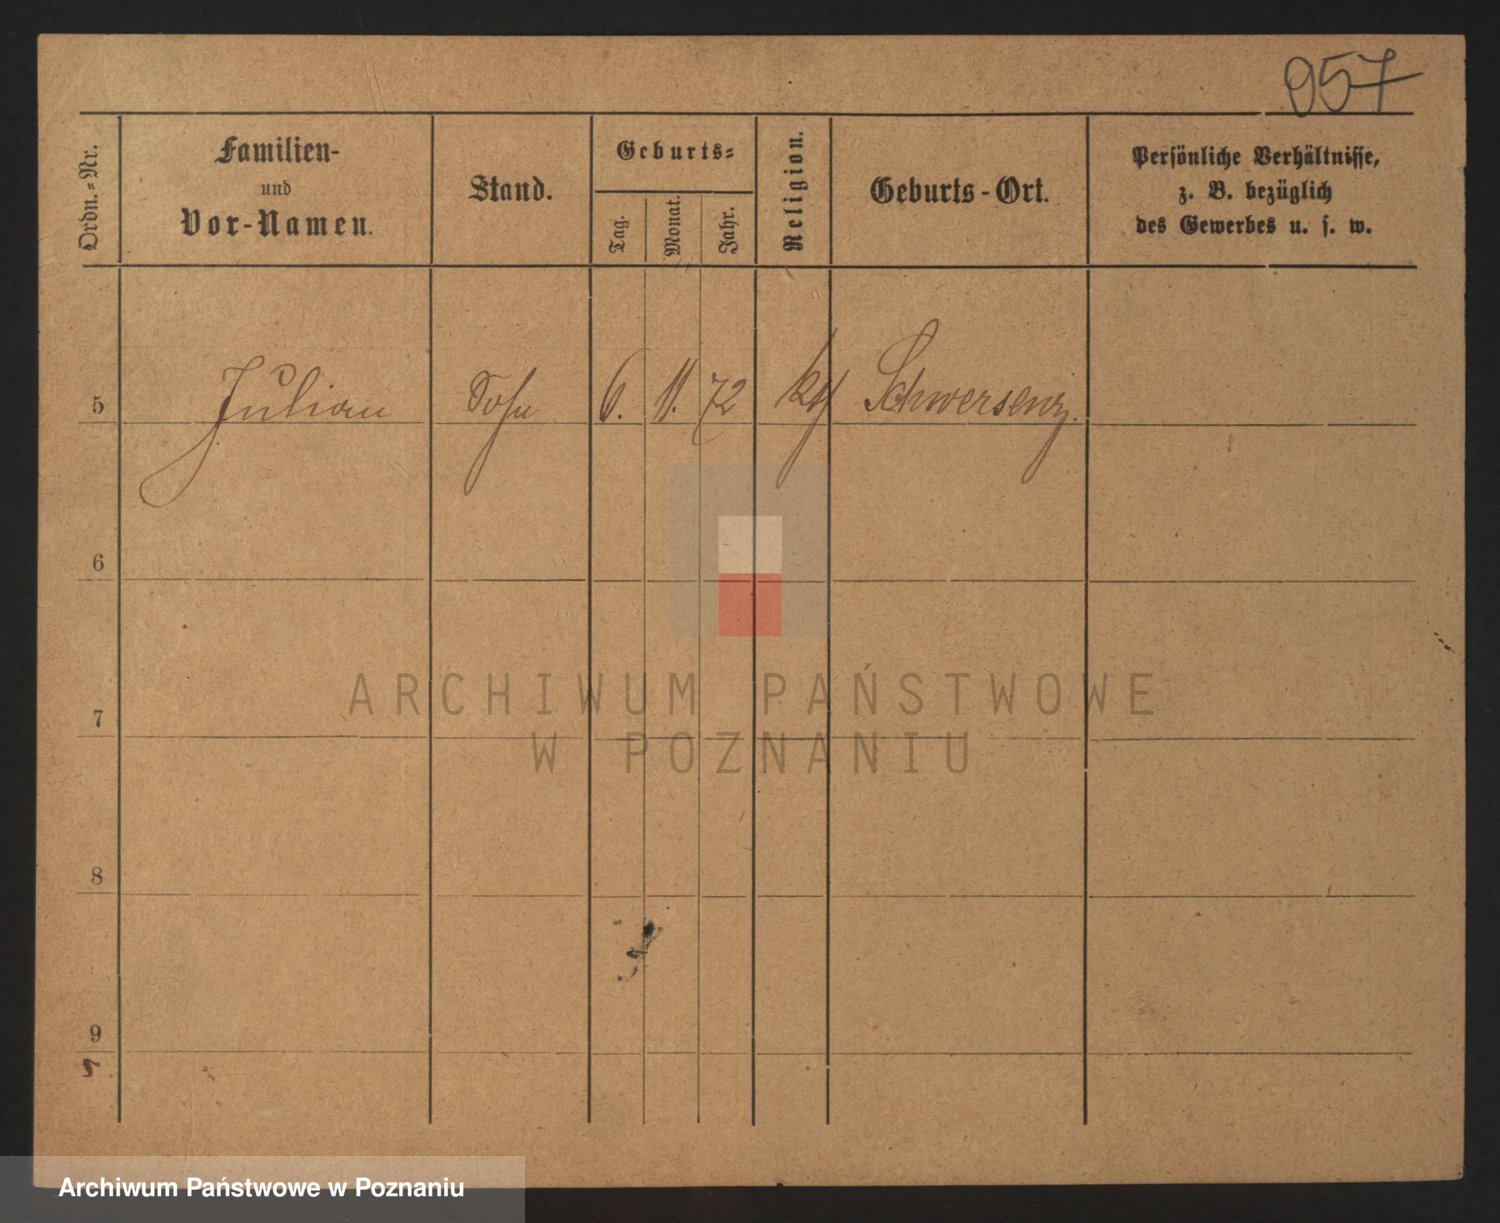 957
Ordn.-Nr.
Familien-
und
Vor-Namen.
Stand.
Geburts-
Tag.
Monat.
Jahr.
Religion.
Geburts-Ort.
Persönliche Verhältnisse,
z. B. bezüglich
des Gewerbes u. s. w.
5 Julian Sohn 6. 11. 72 Schwersenz.
6
7
8
9
ARCHIWUM PAŃSTWOWE
W POZNANIU
Archiwum Państwowe w Poznaniu